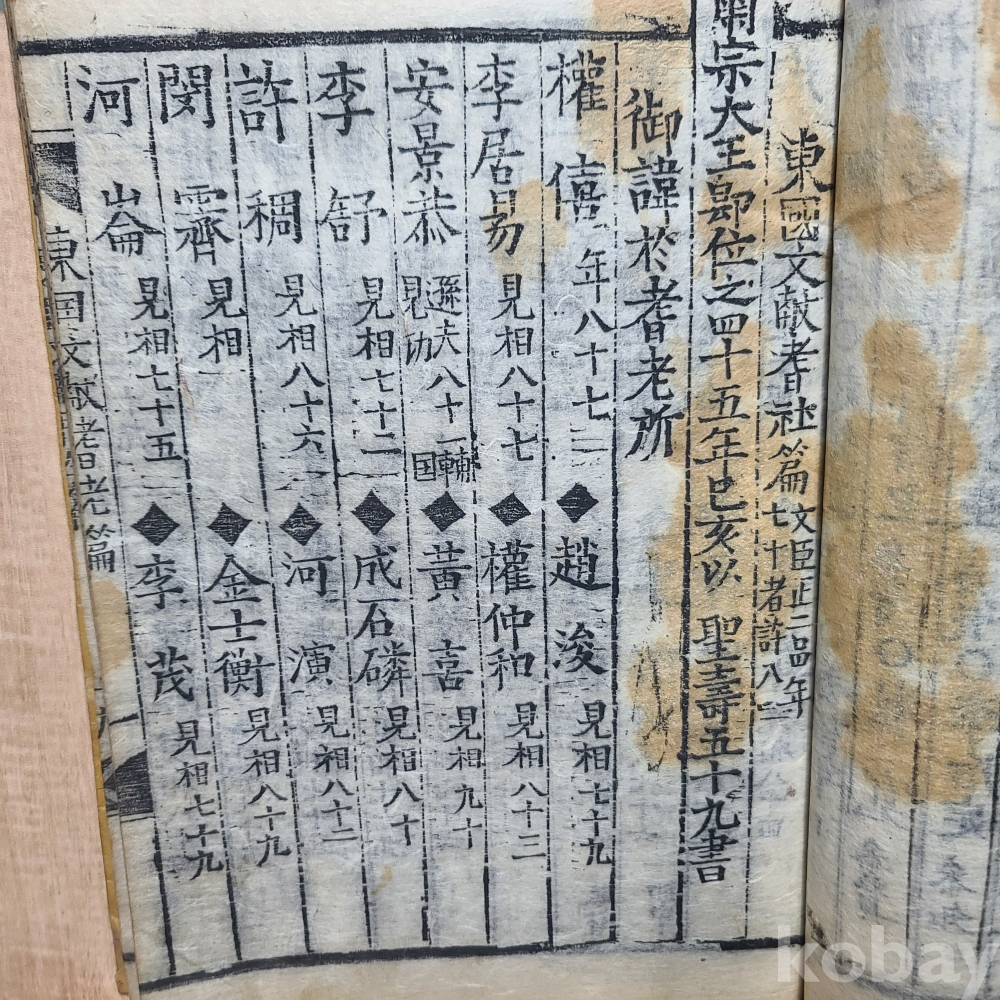 東國文獻耆社篇 文臣正二品年七十者許入
肅宗大王卽位之四十五年己亥以 聖壽五十九書
御諱於耆老所
權僖 年八十七 ◆ 趙浚 見相七十九
李居易 見相八十七 ◆ 權仲和 見相八十二
安景恭 遜夫八十一 見功 國 ◆ 黃喜 見相九十
李舒 見相七十二 ◆ 成石磷 見相八十
許稠 見相八十六 ◆ 河演 見相八十二
閔霽 見相 ◆ 金士衡 見相八十九
河崙 見相七十五 ◆ 李茂 見相七十九
東國文獻 耆老篇
kobay